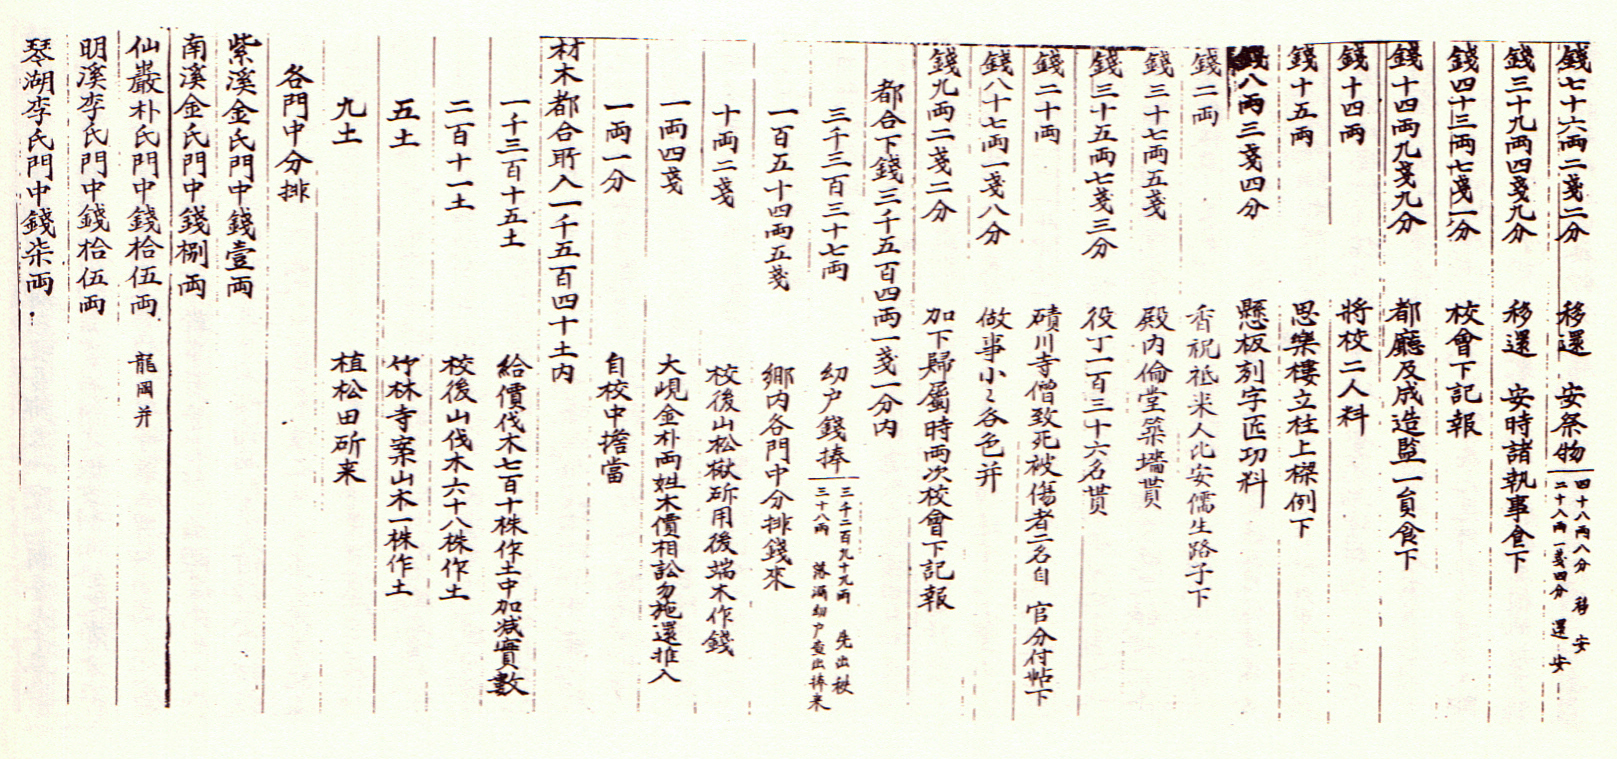 錢七十六両二戔二分 移還 安祭物 四十八両八分 移 安 二十八両一戔四分 還 安
錢三十九両四戔九分 移還 安時諸執事食下
錢四十三両七戔一分 校會下記報
錢十四両九戔九分 都廳及成造監一員食下
錢十四両 將校二人料
錢十五両 思樂樓立柱上樑例下
錢八両三戔四分 懸板刻字匠功料
錢二両 香祝祗米人比安儒生路子下
錢三十七両五戔 殿內倫堂築墻貰
錢三十五両七戔三分 役丁一百三十六名貰
錢二十両 磧川寺僧致死被傷者二名自 官分付帖下
錢八十七両一戔八分 做事小〻各色并
錢九両二戔二分 加下歸屬時両次校會下記報
都合下錢三千五百四両一戔一分內
三千三百三十七両 幼户錢捧 三千二百九十九両 先出秩 三十八両 落漏幼户査出捧来
一百五十四両五戔 鄉內各門中分排錢來
十両二戔 校後山松楸斫用後端木作錢
一両四戔 大峴金朴両姓木價相訟勿施還推入
一両一分 自校中擔當
材木都合所入一千五百四十土內
一千三百十五土 給價伐木七百十株作土中加减實數
二百十一土 校後山伐木六十八株作土
五土 竹林寺案山木一株作土
九土 植松田斫来
各門中分排
紫溪金氏門中錢壹両
南溪金氏門中錢捌両
仙巖朴氏門中錢拾伍両 龍岡并
明溪李氏門中錢拾伍両
琴湖李氏門中錢柒両